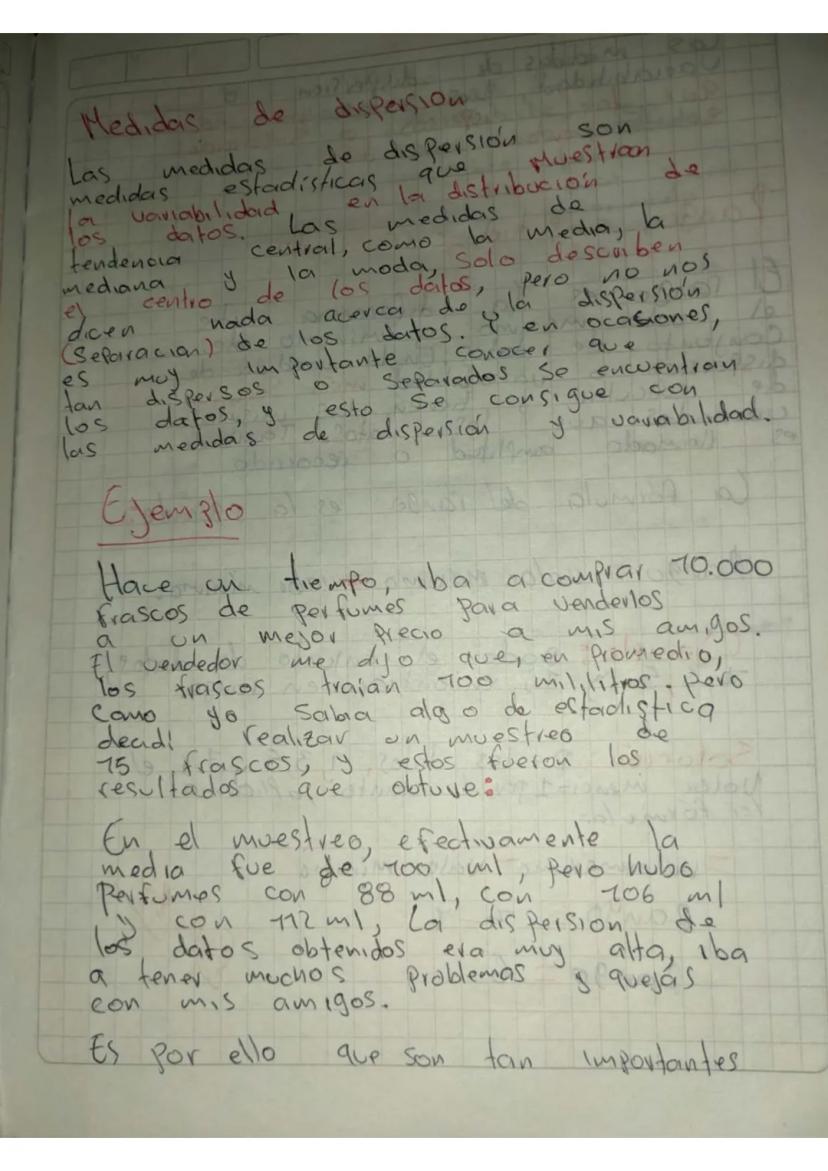 Medidas de dispersion
Las medidas de dispersión son
medidas estadísticas que Muestran
la variabilidad en la distribución de
los datos. Las medidas de
tendencia central, como la media, la
mediana y la moda, solo describen
el centro de los datos, pero no nos
dicen nada acerca de la dispersión
(Separacion) de los datos. Y en ocasiones,
es muy importante conocer que
tan dispersos o separados se encuentran
los datos, y esto se consigue con
las medidas de dispersión y variabilidad.
Ejemplo
Hace un tiempo, iba a comprar 10.000
frascos de perfumes para venderlos
a un mejor precio a mis amigos.
El vendedor me dijo que, en Promedio,
los frascos traian 100 mililitros. pero
como yo sabia algo de estadistica
decidi realizar un muestreo de
15 frascos, y estos fueron los
resultados que obtuve:
En el muestreo, efectivamente la
media fue de 100 ml, pero hubo
Perfumes con 88 ml, con 106 ml
y con 112 ml, La dispersion de
los datos obtenidos era muy alta, iba
a tener muchos problemas y quejas
con mis amigos.
Es por ello que son tan importantes